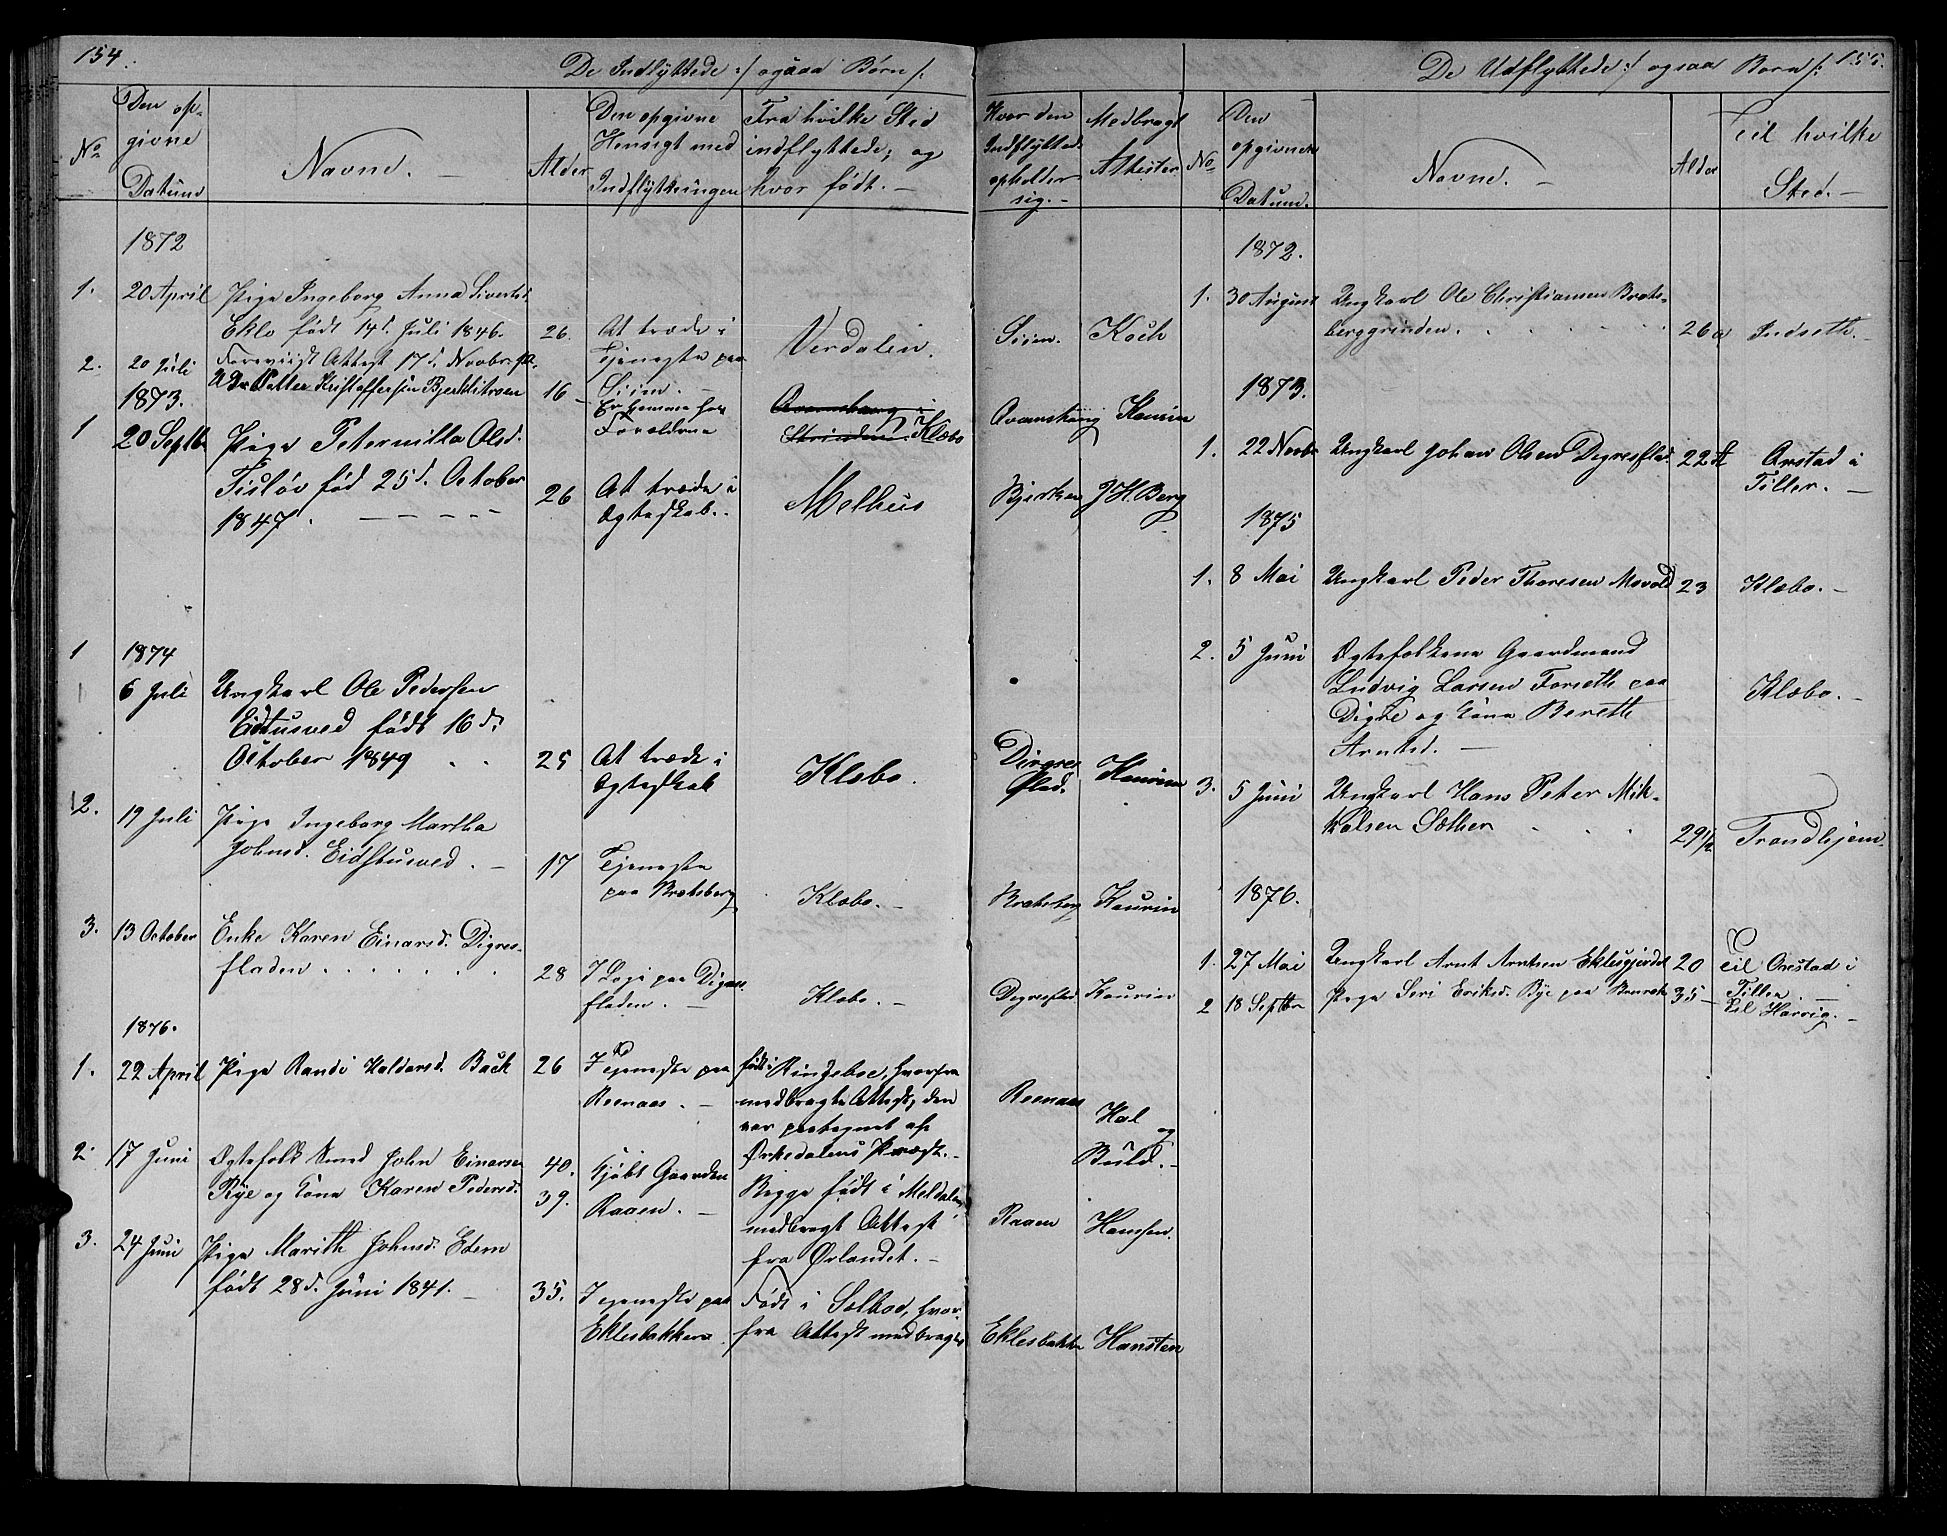 154.
De Indlyttede :/ ogsaa Børn /:
No
Den op-
givne
Datum
Navne. -
Alder
Den opgivne
Hensigt med
Indflytningen
Fra hvilke Sted
indflyttede, og
hvor født. -
Hvor den
Indflyttede
opholder
sig. -
Medbragt
Attester
1872
1. 20 April Pige Ingeborg Anna Sivertsd.
Eklo født 14d. Juli 1846. 26. At træde i
Tjeneste paa
Siien. -
Verdalen. Siien. Koch
Foreviist Attest 17d. Novbr.
2. 20 Juli Petter Kristoffersen 16 - Er hjemme hos
Forældrene
Klæbo Kaurin
1873.
1 20 Septbr Pige Peternilla Olsd.
Tisløv fød 25d. October
1847. - - - - - 26 At træde i
Ægteskab. - Melhus J H. Berg
1874
1 6 Juli Ungkarl Ole Pedersen
Eidtusved født 16d.
October 1849 . . 25 At træde i
Ægteskab Klæbo. Kaurin
2. 19 Juli Pige Ingeborg Martha
Johnsd. Eidstusved. - 17 Tjeneste
paa Bratsberg Klæbo. - Bratsberg Kaurin
3. 13 October Enke Karen Einarsd. Digres-
fladen . . . . . . 28 I Logi paa Digres-
fladen. - Klæbo. - Digresflad. Kaurin
1876.
1. 22 April Pige Randi Haldorsd. Bach 26 Tjeneste paa
Reenaas. - født i Ringeboe, hvorfra
medbragte Attest, den
var paategnet af
Ørkedalens Præst. - Reenaas Hal
og
Buld. -
2. 17 Juni Ægtefolk Smed John Einarsen
Rye og Kone Karen Pedersd. 40.
39. Kjøbt Gaarden
Raaen. - Begge født i Meldalen,
medbragt Attest
fra Ørlandet. - Raaen Hansen.
3. 24 Juni Pige Marith Johnsd. Edem
født 28d. Juni 1841. - 35. Tjeneste paa
Eklesbakken Født i Selboe, hvor-
fra Attest medbragtes Eklesbakken Hansten
De Udflyttede :/ ogsaa Børn /: 155.
No
Den
opgivne
Datum.
Navne. -
Alder
Til hvilke
Sted. -
1872.
1. 30 August Ungkarl Ole Christiansen Brats-
berggrinden. . . . . . 26 Indseth. -
1873.
1. 22 Novbr Ungkarl Johan Olsen Digresflad. 22 Orstad i
Tiller. -
1875
1. 8 Mai Ungkarl Peder Thoresen Movold 23 Klæbo. -
2. 5 Juni Ægtefolkene Gaardmand
Ludvig Larsen Forseth paa
Digre og Kone Bereth
Arntsd. - Klæbo. -
3. 5 Juni Ungkarl Hans Peter Mik-
kalsen Sæther . . . 29 1/2 Trondhjem.
1876.
1. 27 Mai Ungkarl Arnt Arntsen Eklesgjerdet 20 Til Orestad i
Tiller. -
2 18 Septbr Pige Seri Eriksd. Bye paa 35 - til